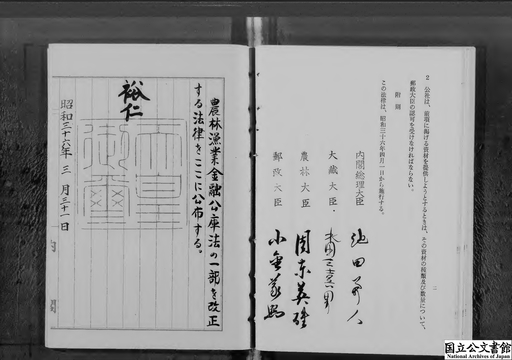 2 公社は、前項に掲げる資材を提供しようとするときは、その資材の種類及び数量について、
郵政大臣の認可を受けなければならない。
附則
この法律は、昭和三十六年四月一日から施行する。
内閣総理大臣 池田勇人
大蔵大臣 水田三喜男
農林大臣 周東英雄
郵政大臣 小金義照
二
農林漁業金融公庫法の一部を改正
する法律をここに公布する。
裕仁
天皇御璽
昭和三十六年三月三十一日
国立公文書館
National Archives of Japan